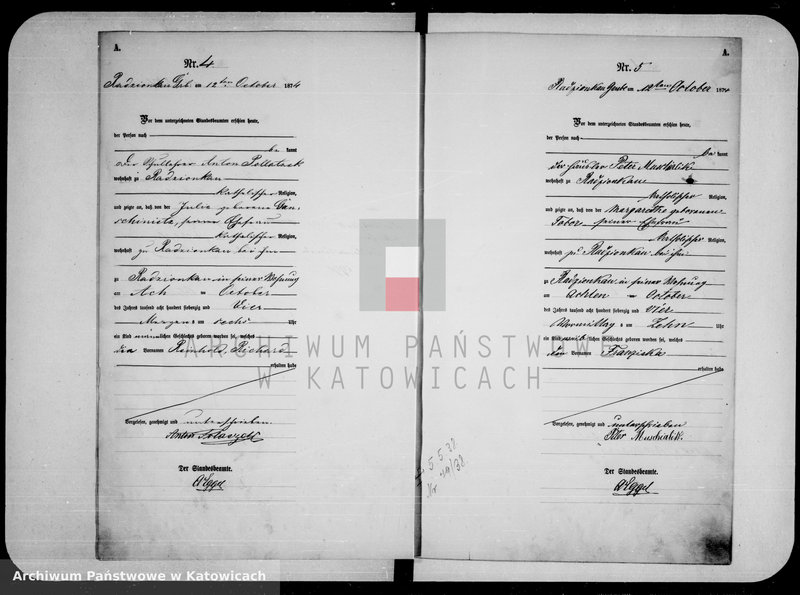 A.
Nr. 4
Radzionkau Grb. am 12ten October 1874
Vor dem unterzeichneten Standesbeamten erschien heute,
der Person nach
be kannt
Der Schullehrer Anton
wohnhaft zu Radzionkau
katholischer Religion,
und zeigte an, daß von der Julia geborene
seiner Ehefrau
katholischer Religion,
wohnhaft zu Radzionkau bei ihm
zu Radzionkau in seiner Wohnung
am October
des Jahres tausend acht hundert siebenzig und Vier
Morgens um sechs Uhr
ein Kind männlichen Geschlechts geboren worden sei, welches
den Vornamen Reinhold, Richard
erhalten habe
Vorgelesen, genehmigt und unterschrieben.
Anton
Der Standesbeamte.
A.
Nr. 5
Radzionkau am 12ten October 1874
Vor dem unterzeichneten Standesbeamten erschien heute,
der Person nach
be kannt
der Häusler Peter
wohnhaft zu Radzionkau
katholischer Religion,
und zeigte an, daß von der Margarethe geborenen
seiner Ehefrau
katholischer Religion,
wohnhaft zu Radzionkau bei ihm
zu Radzionkau in seiner Wohnung
am Achten October
des Jahres tausend acht hundert siebenzig und Vier
Vormittag um Zehn Uhr
ein Kind weiblichen Geschlechts geboren worden sei, welches
den Vornamen Franziska
erhalten habe
Vorgelesen, genehmigt und unterschrieben
Peter
Der Standesbeamte.
5.5.38
ARCHIWUM PAŃSTWOWE
W KATOWICACH
Archiwum Państwowe w Katowicach